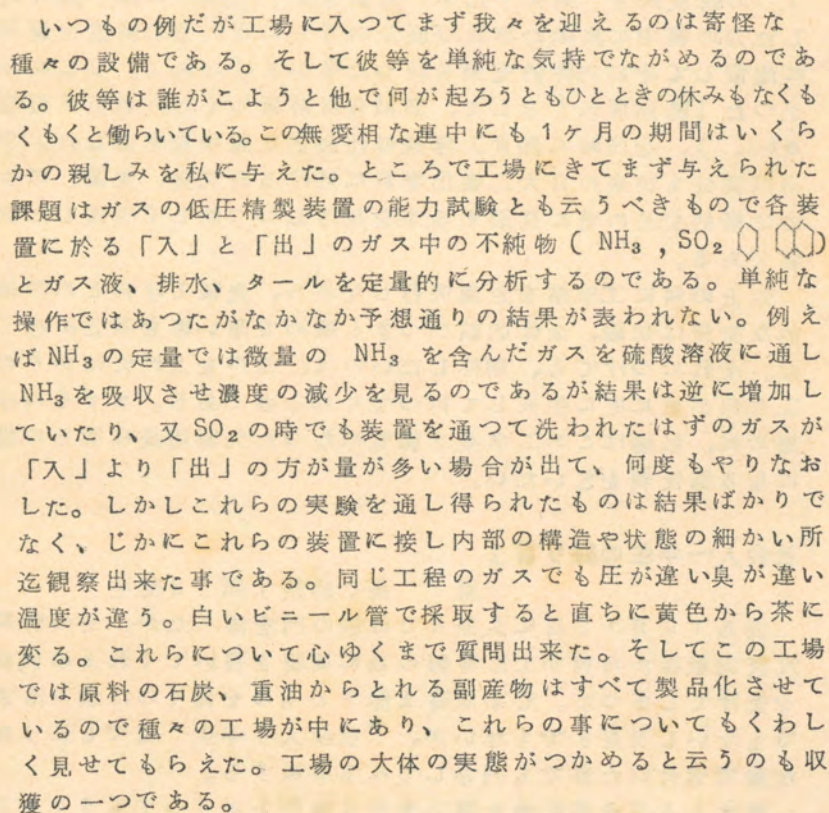 いつもの例だが工場に入つてまず我々を迎えるのは寄怪な
種々の設備である。そして彼等を単純な気持でながめるのであ
る。彼等は誰がこようと他で何が起ろうともひとときの休みもなくも
くもくと働らいている。この無愛相な連中にも1ケ月の期間はいくら
かの親しみを私に与えた。ところで工場にきてまず与えられた
課題はガスの低圧精製装置の能力試験とも云うべきもので各装
置に於る「入」と「出」のガス中の不純物( NH₃ , SO₂ )
とガス液、排水、タールを定量的に分析するのである。単純な
操作ではあつたがなかなか予想通りの結果が表われない。例え
ばNH₃の定量では微量の NH₃ を含んだガスを硫酸溶液に通し
NH₃を吸収させ濃度の減少を見るのであるが結果は逆に増加し
ていたり、又SO₂の時でも装置を通つて洗われたはずのガスが
「入」より「出」の方が量が多い場合が出て、何度もやりなお
した。しかしこれらの実験を通し得られたものは結果ばかりで
なく、じかにこれらの装置に接し内部の構造や状態の細かい所
迄観察出来た事である。同じ工程のガスでも圧が違い臭が違い
温度が違う。白いビニール管で採取すると直ちに黄色から茶に
変る。これらについて心ゆくまで質問出来た。そしてこの工場
では原料の石炭、重油からとれる副産物はすべて製品化させて
いるので種々の工場が中にあり、これらの事についてもくわし
く見せてもらえた。工場の大体の実態がつかめると云うのも収
獲の一つである。